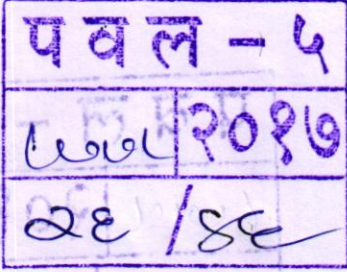 पवल - ५
७७५ २०१७
२६ / ४६